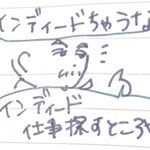 インディードちゅうな
インディード
仕事探すところや